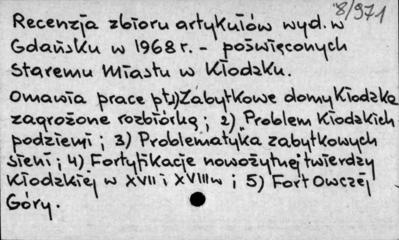 8/971
Recenzja zbioru artykułów wyd. w
Gdańsku w 1968 r. - poświęconych
Staremu Miastu w Kłodzku.
Omawia prace pt 1) Zabytkowe domy Kłodzka
zagrożone rozbiórką; 2) Problem Kłodzkich
podziemi; 3) Problematyka zabytkowych
sieni; 4) Fortyfikacje nowożytnej twierdzy
Kłodzkiej w XVII i XVIII w; 5) Fort Owczej
Góry.